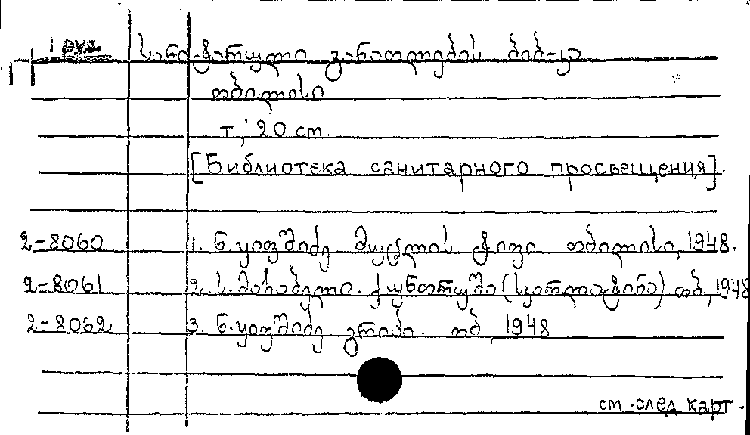 სანიტარული განათლების ბიბ-კა
თბილისი
т; 20 cm.
[Библиотека санитарного просвещения]
2-8060 1. ნ. ყიფშიძე მუცლის ტიფი თბილისი, 1948.
2-8061 2. ს. მარაბელი. ქუნთრუშა (სკარლატინა) თბ, 1948
2-8062 3. ნ. ყიფშიძე გრიპი. თბ, 1948
см. след карт.